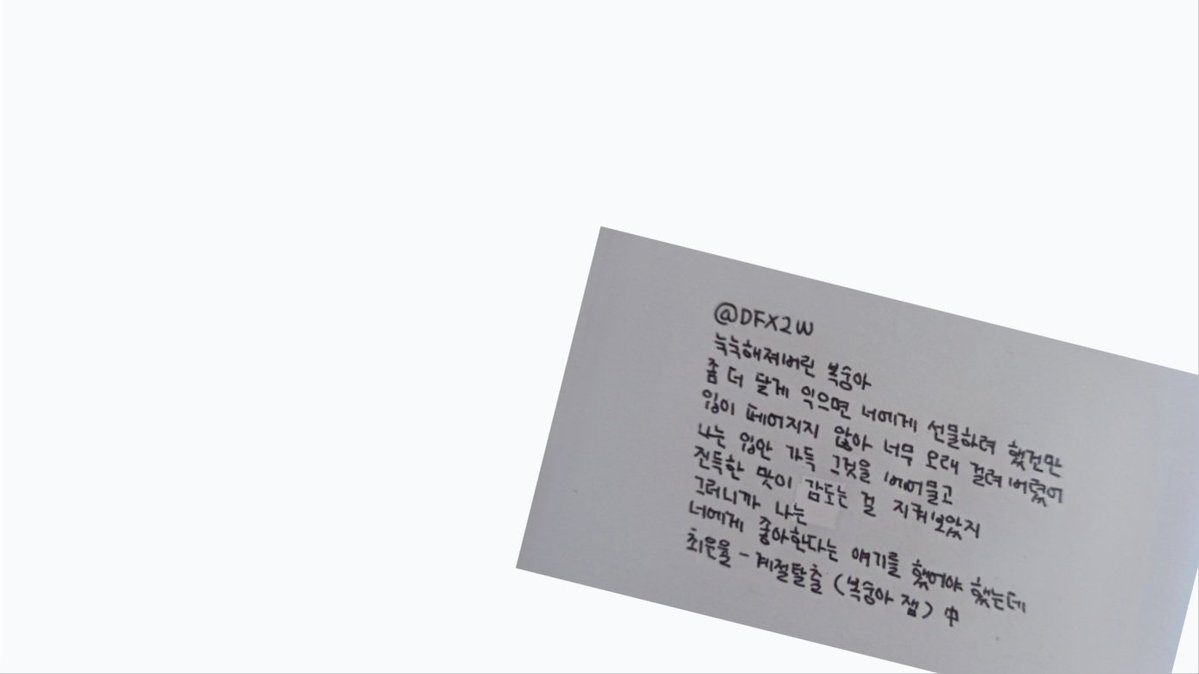 @DFX2W
눅눅해져버린 복숭아
좀 더 달게 익으면 너에게 선물하려 했건만
입이 떼어지지 않아 너무 오래 걸려버렸어
나는 입안 가득 그것을 베어물고
진득한 맛이 감도는 걸 지켜보았지
그러니까 나는
너에게 좋아한다는 얘기를 했어야 했는데
최은율 - 계절탈출 (복숭아 잼) 中